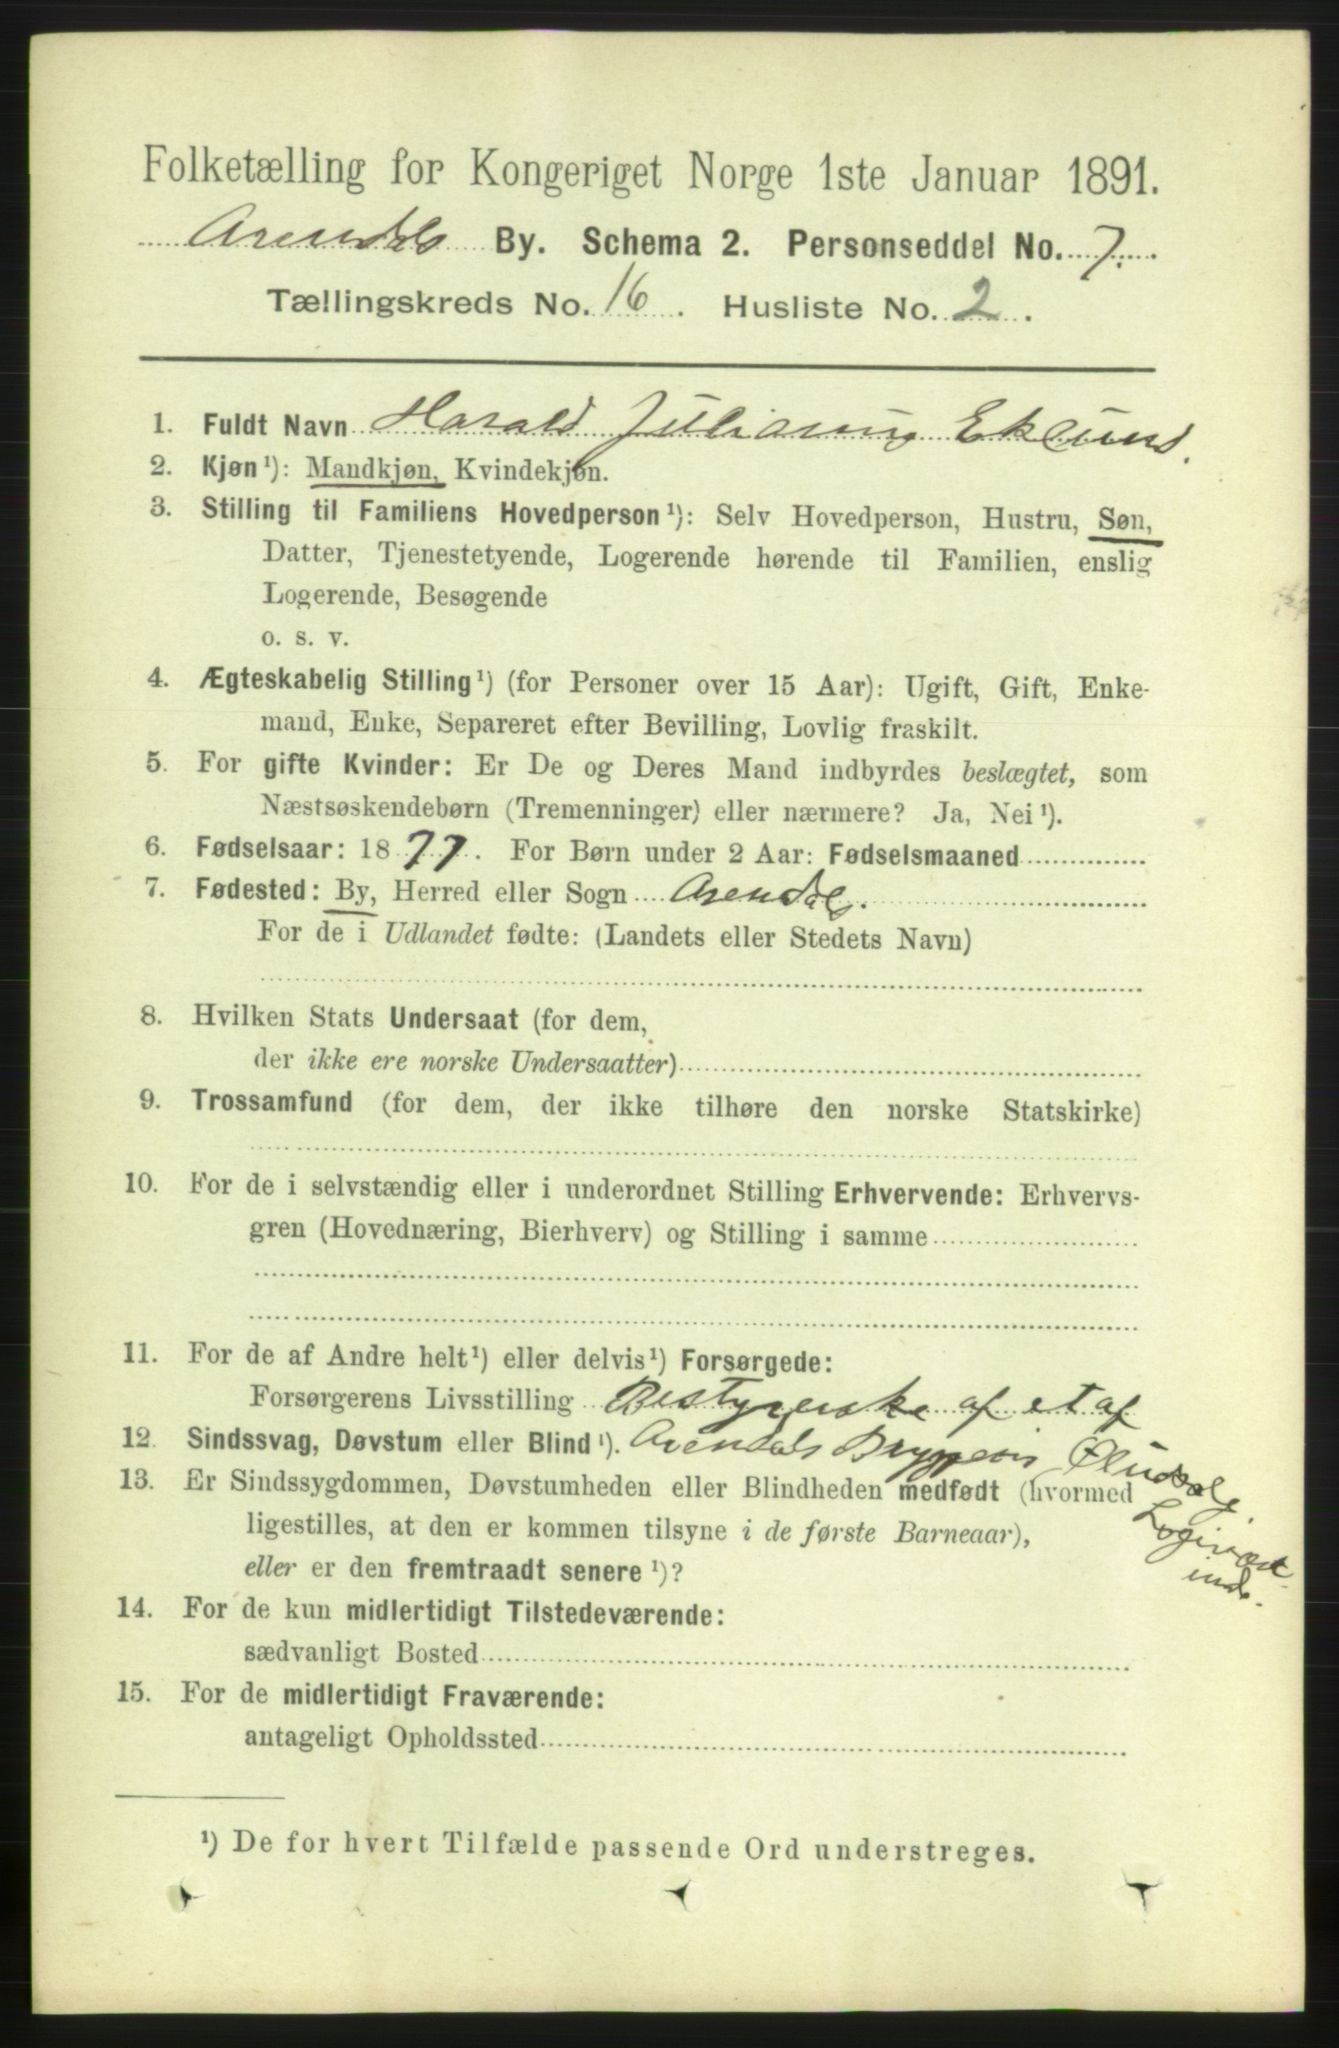 Folketælling for Kongeriget Norge 1ste Januar 1891.
Arendals By. Schema 2. Personseddel No. 7.
Tællingskreds No. 16. Husliste No. 2.
1. Fuldt Navn Harald Julianus Eklund.
2. Kjøn ¹): Mandkjøn, Kvindekjøn.
3. Stilling til Familiens Hovedperson ¹): Selv Hovedperson, Hustru, Søn,
Datter, Tjenestetyende, Logerende hørende til Familien, enslig
Logerende, Besøgende
o. s. v.
4. Ægteskabelig Stilling ¹) (for Personer over 15 Aar): Ugift, Gift, Enke-
mand, Enke, Separeret efter Bevilling, Lovlig fraskilt.
5. For gifte Kvinder: Er De og Deres Mand indbyrdes beslægtet, som
Næstsøskendebørn (Tremenninger) eller nærmere? Ja, Nei ¹).
6. Fødselsaar: 1877. For Børn under 2 Aar: Fødselsmaaned
7. Fødested: By, Herred eller Sogn Arendal.
For de i Udlandet fødte: (Landets eller Stedets Navn)
8. Hvilken Stats Undersaat (for dem,
der ikke ere norske Undersaatter)
9. Trossamfund (for dem, der ikke tilhøre den norske Statskirke)
10. For de i selvstændig eller i underordnet Stilling Erhvervende: Erhvervs-
gren (Hovednæring, Bierhverv) og Stilling i samme
11. For de af Andre helt ¹) eller delvis ¹) Forsørgede:
Forsørgerens Livsstilling Bestyrerske af et af
12. Sindssvag, Døvstum eller Blind ¹). Arendals Bryggeris Øludsalg.
13. Er Sindssygdommen, Døvstumheden eller Blindheden medfødt (hvormed
Logivært-
ligestilles, at den er kommen tilsyne i de første Barneaar),
inde.
eller er den fremtraadt senere ¹)?
14. For de kun midlertidigt Tilstedeværende:
sædvanligt Bosted
15. For de midlertidigt Fraværende:
antageligt Opholdssted
¹) De for hvert Tilfælde passende Ord understreges.